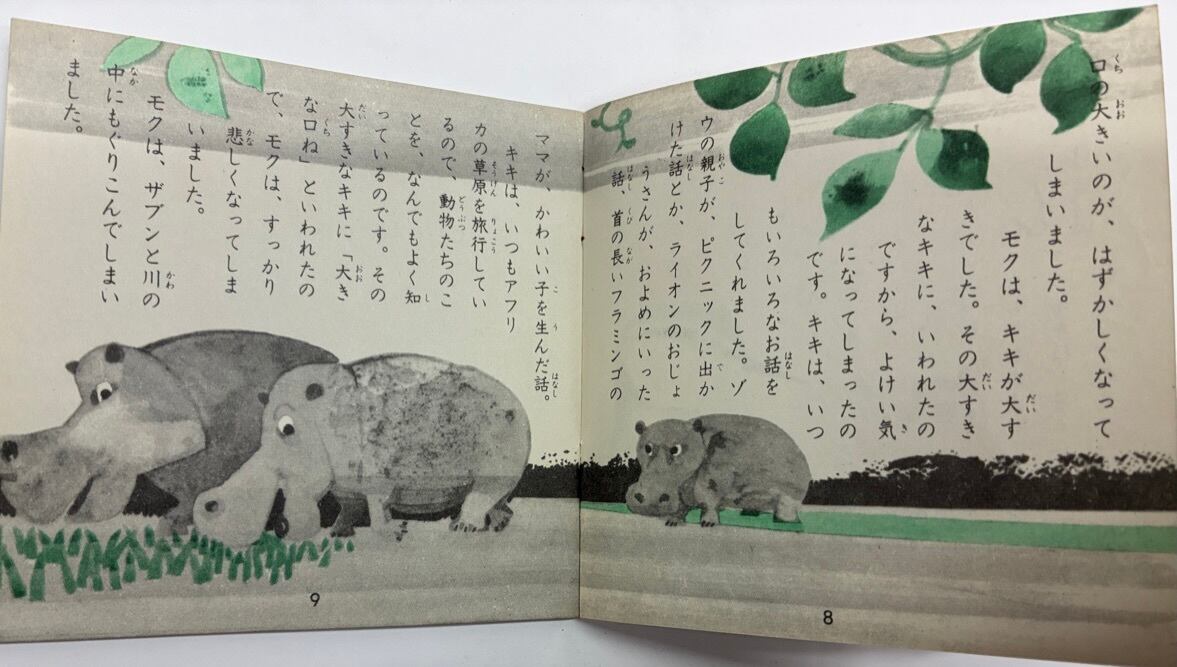 口の大きいのが、はずかしくなって
しまいました。
モクは、キキが大す
きでした。その大すき
なキキに、いわれたの
ですから、よけい気
になってしまったの
です。キキは、いつ
もいろいろなお話を
してくれました。ゾ
ウの親子が、ピクニックに出か
けた話とか、ライオンのおじょ
うさんが、およめにいった
話、首の長いフラミンゴの
8
ママが、かわいい子を生んだ話。
キキは、いつもアフリ
カの草原を旅行してい
るので、動物たちのこ
とを、なんでもよく知
っているのです。その
大すきなキキに「大き
な口ね」といわれたの
で、モクは、すっかり
悲しくなってしま
いました。
モクは、ザブンと川の
中にもぐりこんでしまい
ました。
9